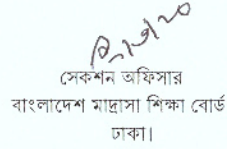 সেকশন অফিসার
বাংলাদেশ মাদ্রাসা শিক্ষা বোর্ড
ঢাকা।